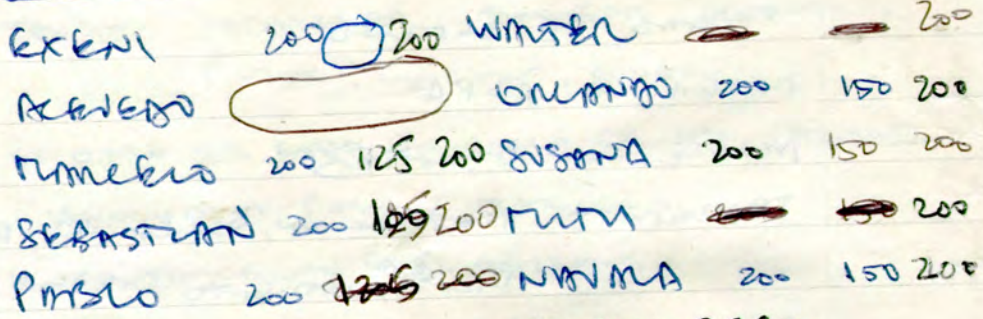 EXENI 200 200 WALTER 200
ACEVEDO ORLANDO 200 150 200
MARCELO 200 125 200 SUSANA 200 150 200
SEBASTIAN 200 200 MIMI 200
PABLO 200 200 200 150 200